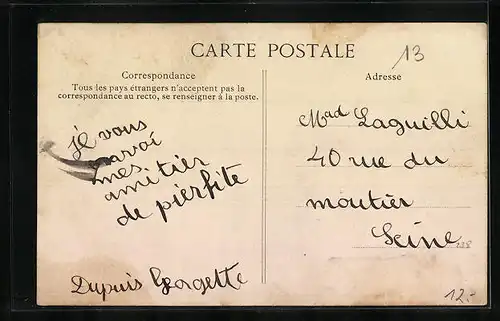 CARTE POSTALE
13
Correspondance
Tous les pays étrangers n'acceptent pas la
correspondance au recto, se renseigner à la poste.
Adresse
je vous
envoi
mes
amitier
de pierfite
Depuis Georgette
Mad Laguilli
40 rue du
moutier
Seine
12.-